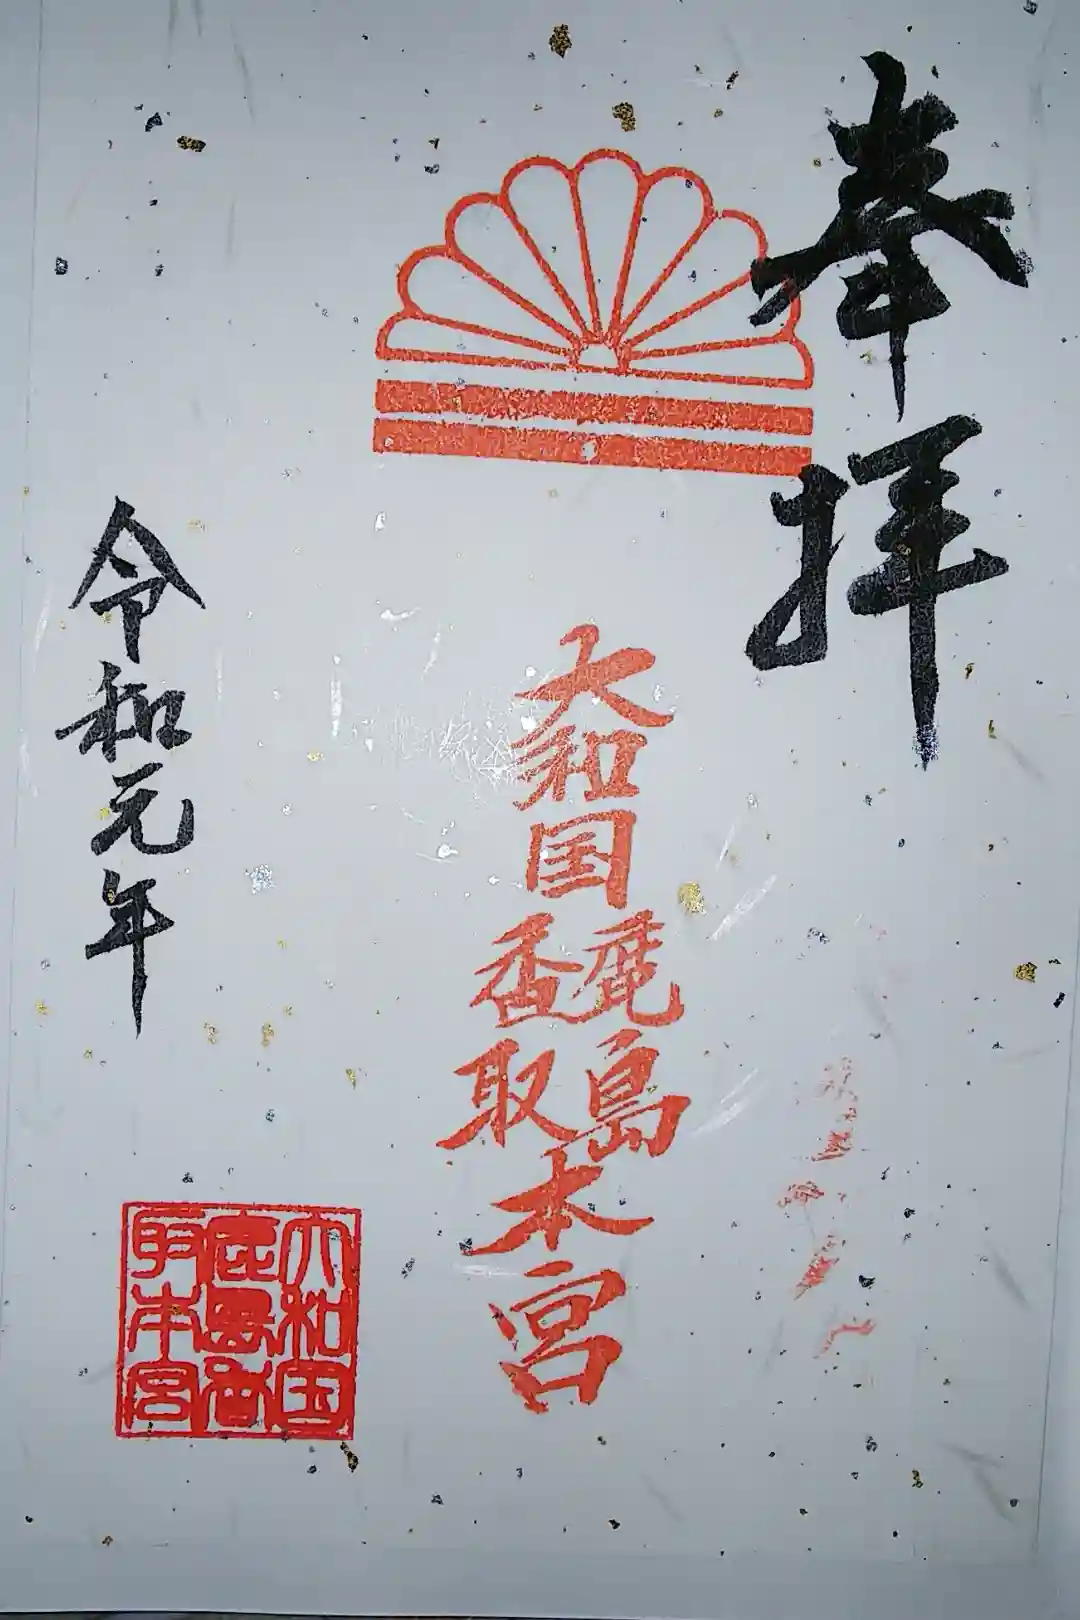 奉拝
大和国
鹿島
香取
本宮
令和元年
大和国
鹿島香
取本宮